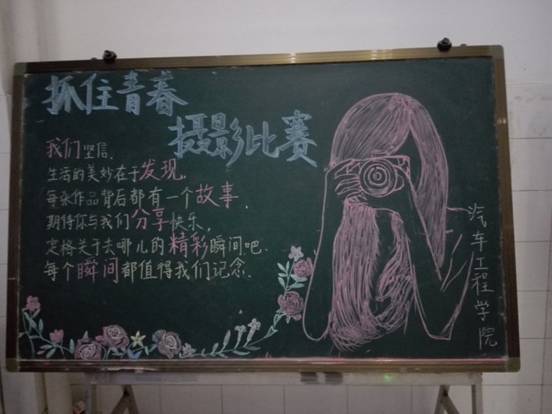 抓住青春
摄影比赛
我们坚信,
生活的美妙在于发现,
每张作品背后都有一个故事,
期待你与我们分享快乐,
定格关于去哪儿的精彩瞬间吧.
每个瞬间都值得我们记念.
汽车工程学院